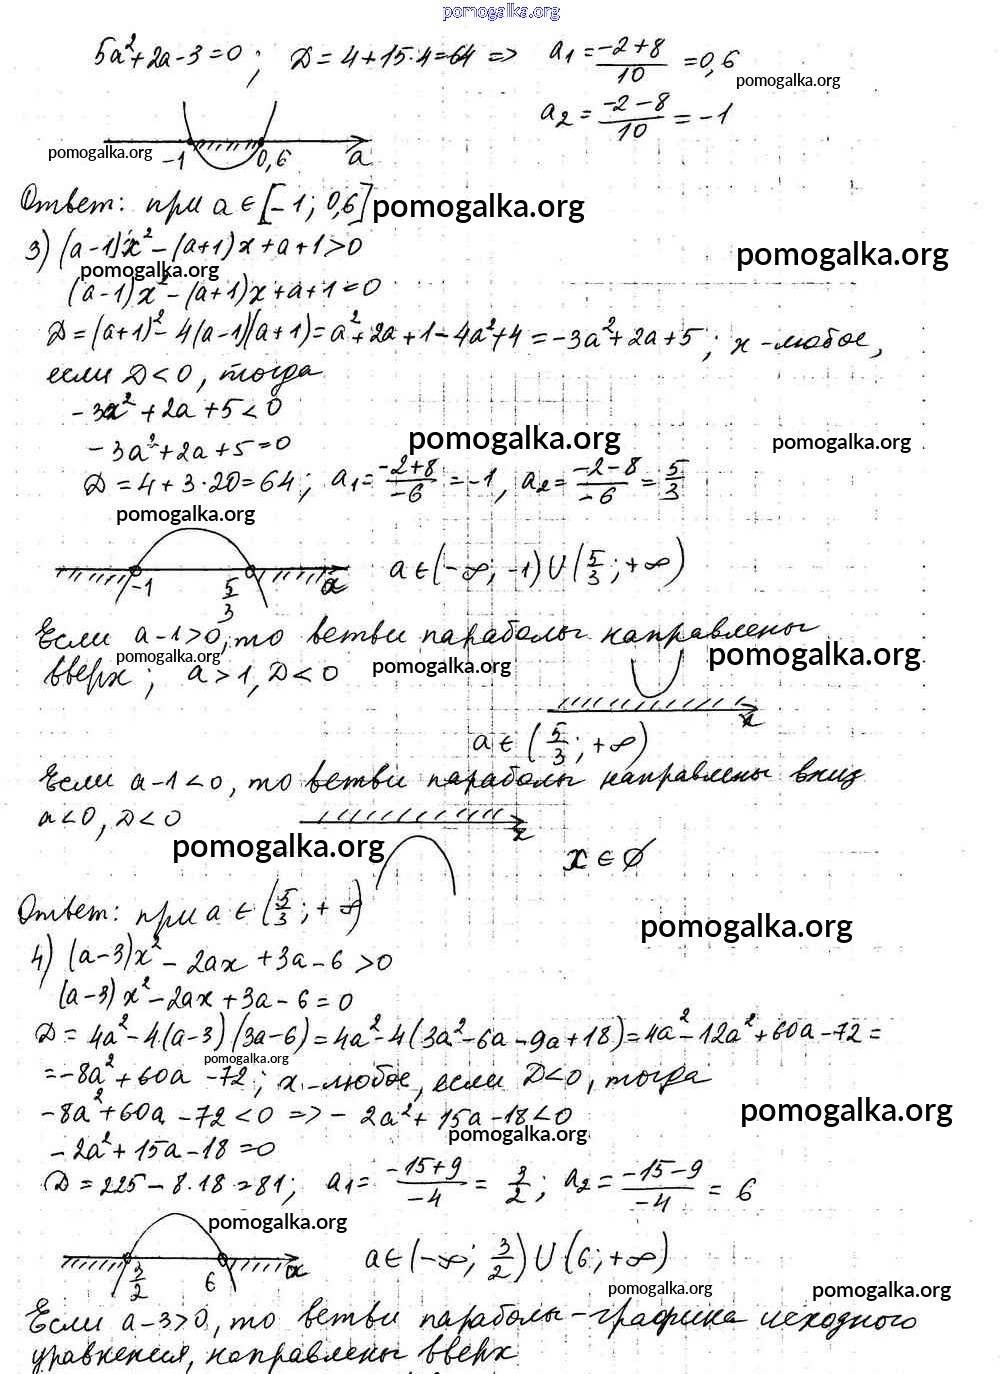 pomogalka.org
5a²+2a-3=0; Д=4+15·4=64 => a₁=(-2+8)/10=0,6
pomogalka.org
a₂=(-2-8)/10=-1
pomogalka.org
-1 0,6 a
Ответ: при a∈[-1; 0,6] pomogalka.org
3) (a-1)x²-(a+1)x+a+1>0
pomogalka.org
pomogalka.org
(a-1)x²-(a+1)x+a+1=0
Д=(a+1)²-4(a-1)(a+1)=a²+2a+1-4a²+4=-3a²+2a+5; x-любое,
если Д<0, тогда
-3a²+2a+5<0
pomogalka.org pomogalka.org
-3a²+2a+5=0
Д=4+3·20=64; a₁=(-2+8)/-6=-1, a₂=(-2-8)/-6=5/3
pomogalka.org
-1 5/3 a a∈(-∞; -1)∪(5/3; +∞)
Если a-1>0, то ветви параболы направлены
pomogalka.org pomogalka.org pomogalka.org
вверх; a>1, Д<0
x
a∈(5/3; +∞)
Если a-1<0, то ветви параболы направлены вниз
a<0, Д<0 x
pomogalka.org x∈∅
Ответ: при a∈(5/3; +∞)
pomogalka.org
4) (a-3)x²-2ax+3a-6>0
(a-3)x²-2ax+3a-6=0
Д=4a²-4(a-3)(3a-6)=4a²-4(3a²-6a-9a+18)=4a²-12a²+60a-72=
pomogalka.org
=-8a²+60a-72; x-любое, если Д<0, тогда
-8a²+60a-72<0 => -2a²+15a-18<0
pomogalka.org
pomogalka.org
-2a²+15a-18=0
Д=225-8·18=81; a₁=(-15+9)/-4=3/2; a₂=(-15-9)/-4=6
pomogalka.org
3/2 6 a a∈(-∞; 3/2)∪(6; +∞)
pomogalka.org pomogalka.org
Если a-3>0, то ветви параболы-графика исходного
уравнения, направлены вверх